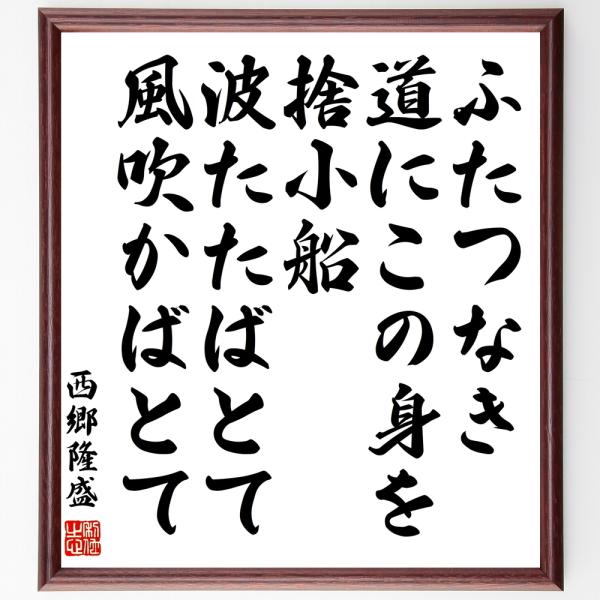 ふたつなき
道にこの身を
捨小船
波たたばとて
風吹かばとて
西郷隆盛